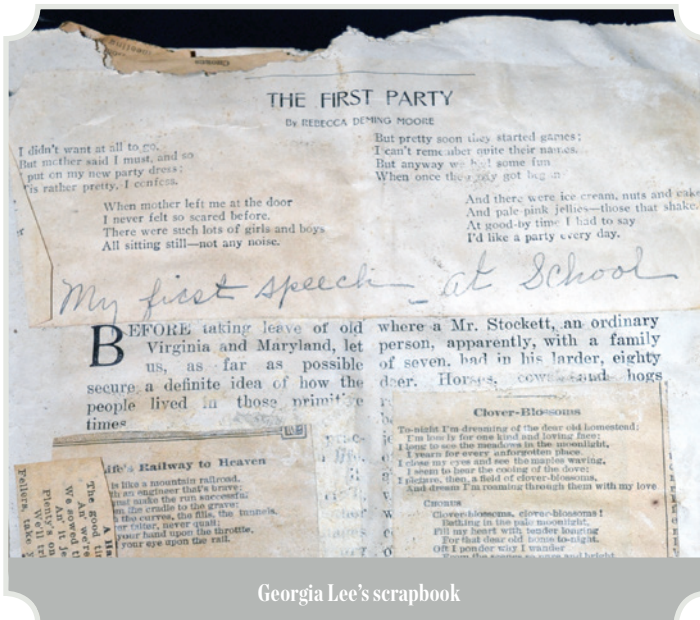 THE FIRST PARTY
By REBECCA DEMING MOORE
I didn't want at all to go,
But mother said I must, and so
put on my new party dress;
'Tis rather pretty, I confess.
When mother left me at the door
I never felt so scared before.
There were such lots of girls and boys
All sitting still—not any noise.
But pretty soon they started games;
I can't remember quite their names.
But anyway we had some fun
When once the party got begun.
And there were ice cream, nuts and cake
And pale pink jellies—those that shake.
At good-by time I had to say
I'd like a party every day.
My first speech - at School
BEFORE taking leave of old
Virginia and Maryland, let
us, as far as possible
secure a definite idea of how the
people lived in those primitive
times
where a Mr. Stockett, an ordinary
person, apparently, with a family
of seven, had in his larder, eighty
deer. Horses, cows and hogs
ife's Railway to Heaven
is like a mountain railroad,
th an engineer that's brave;
ust make the run successful
m the cradle to the grave;
the curves, the fills, the tunnels,
er falter, never quail;
your hand upon the throttle,
your eye upon the rail.
A Ha
The good ti
Ah we're
We sowed t
An' it je
Plenty's on
We'll tri
Fellers, take
Clover-Blossoms
To-night I'm dreaming of the dear old homestead;
I'm lonely for one kind and loving face;
I long to see the meadows in the moonlight,
I yearn for every unforgotten place.
I close my eyes and see the maples waving,
I seem to hear the cooing of the dove;
I picture, then, a field of clover-blossoms,
And dream I'm roaming through them with my love
CHORUS
Clover-blossoms, clover-blossoms!
Bathing in the pale moonlight,
Fill my heart with tender longing
For that dear old home to-night.
Oft I ponder why I wander
Georgia Lee's scrapbook